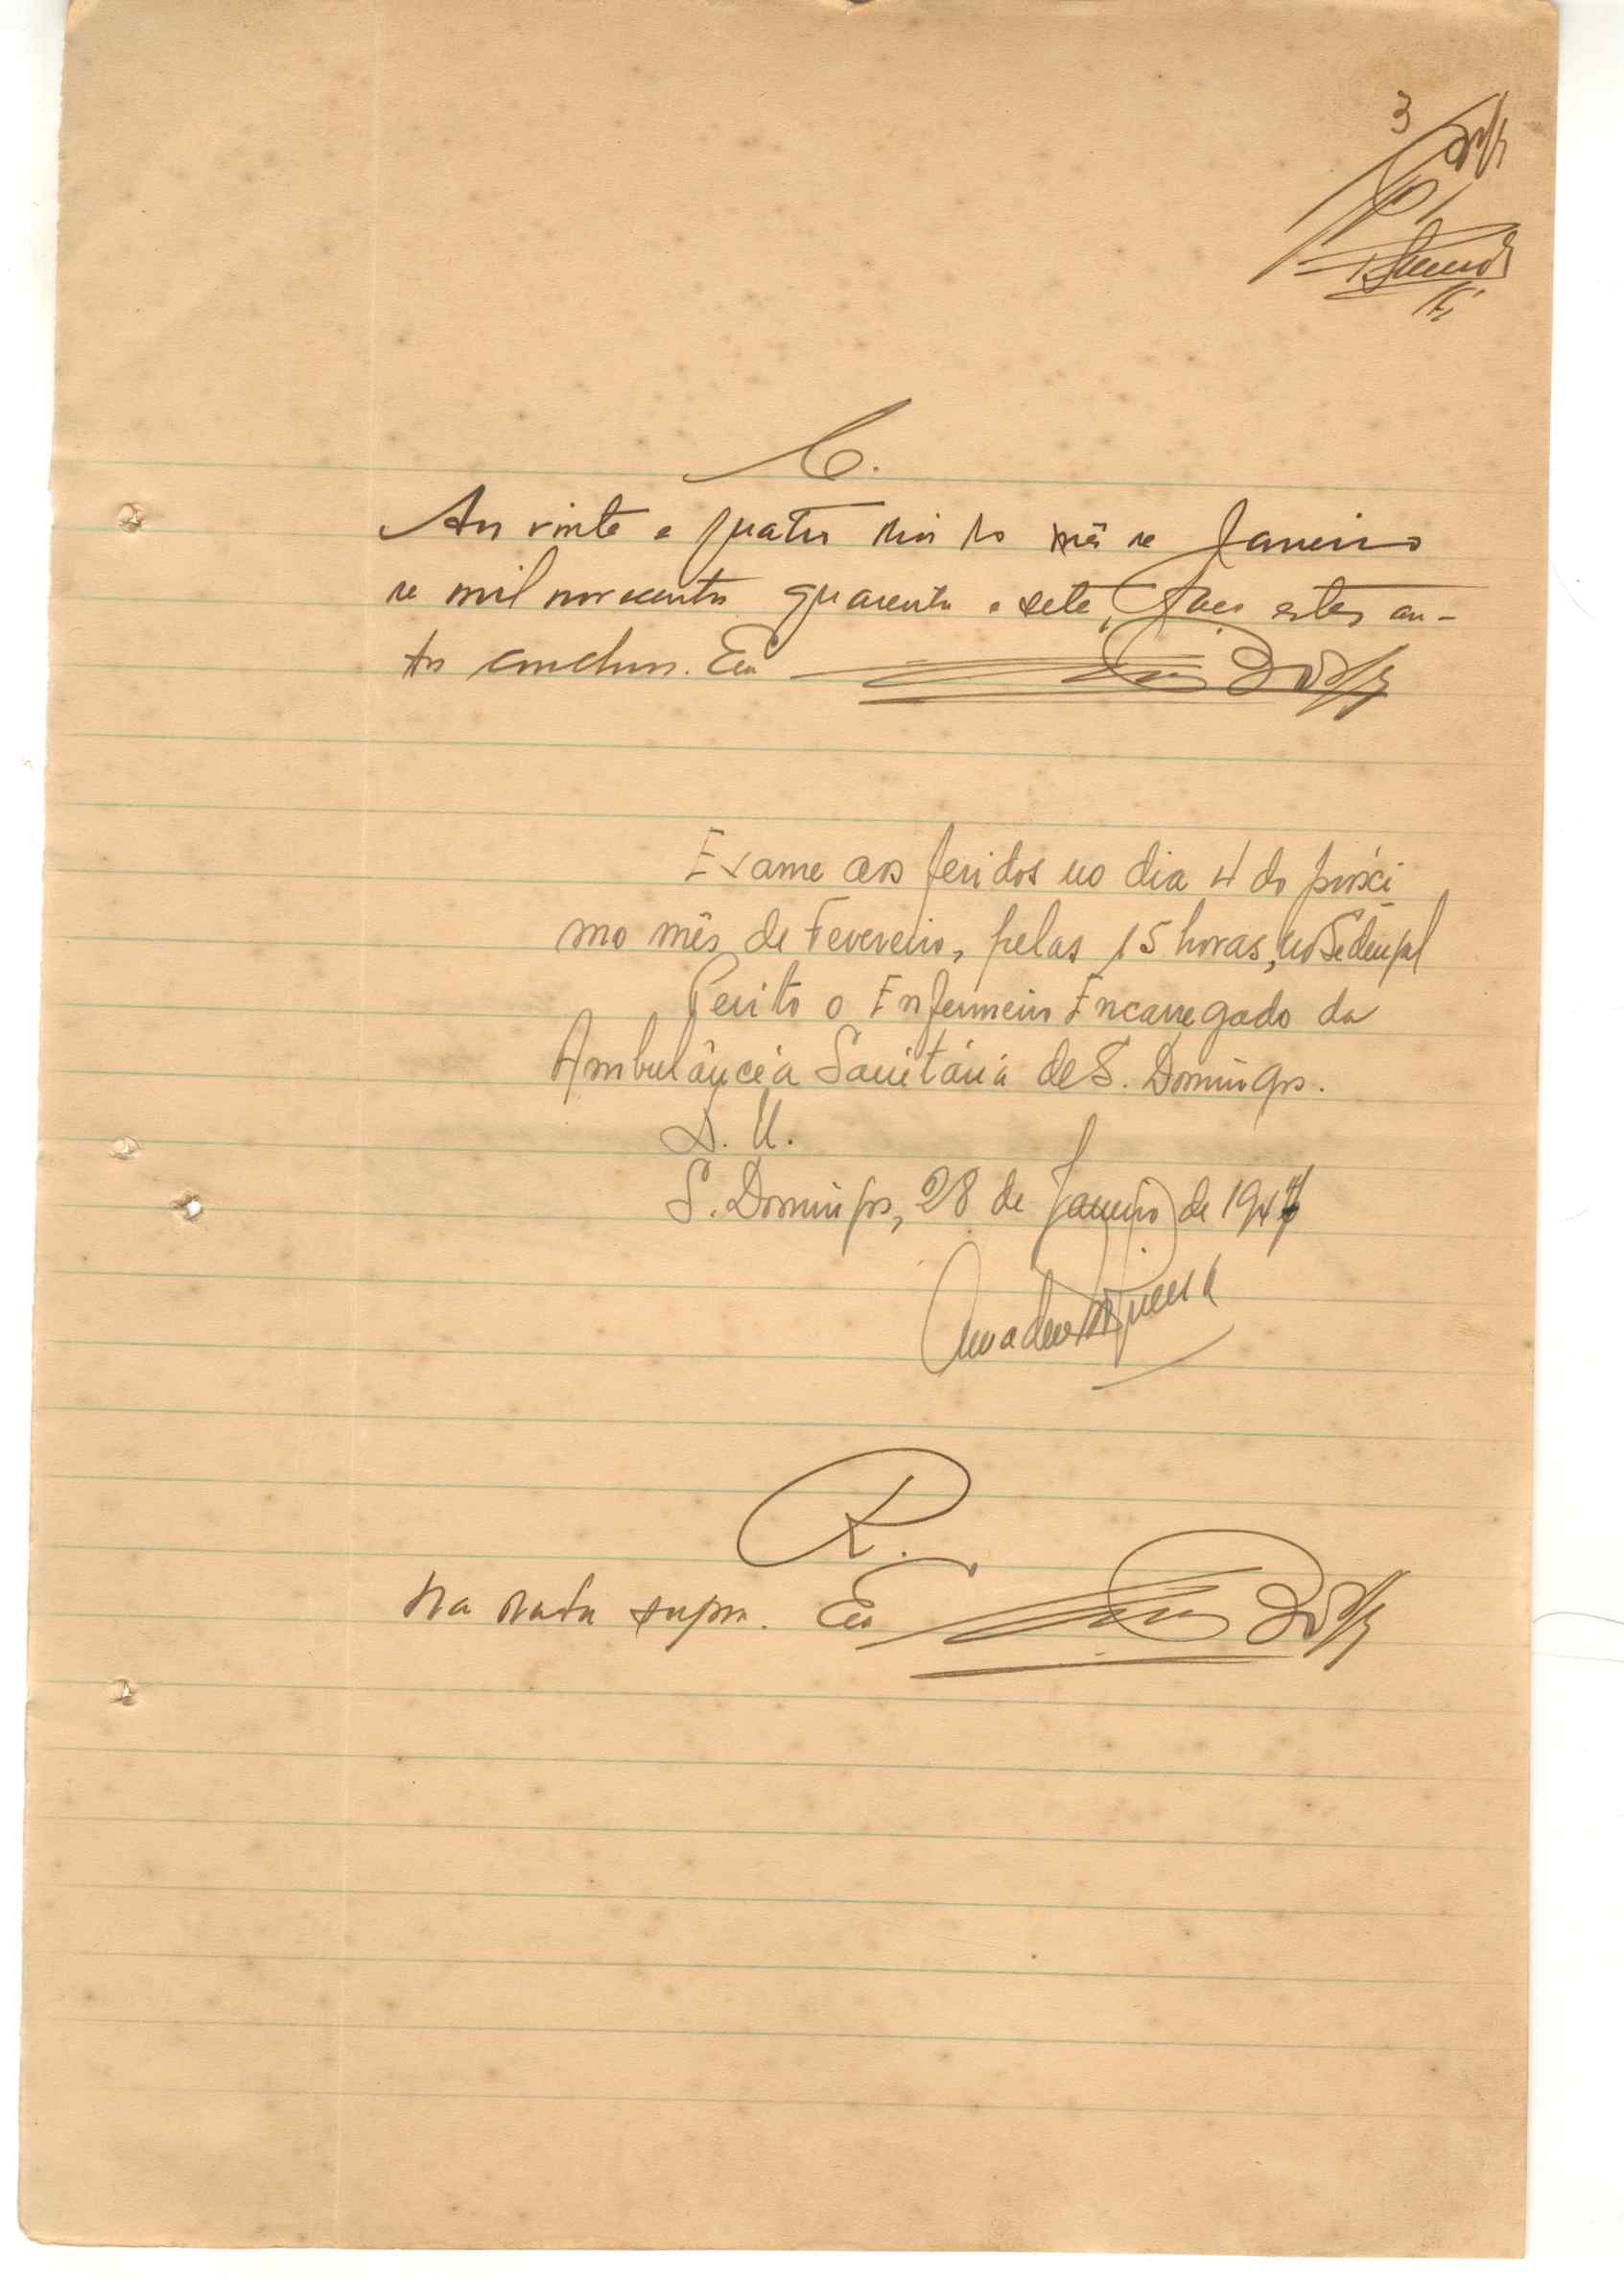 3
C.
Aos vinte e quatro dias do mês de Janeiro
de mil novecentos quarenta e sete, faço estes au-
tos conclusos. Eu
Exame aos feridos no dia 4 do próxi
mo mês de Fevereiro, pelas 15 horas, no
Perito o Enfermeiro Encarregado da
Ambulância Sanitária de S. Domingos.
D. U.
S. Domingos, 28 de Janeiro de 1947
Amadeu
R.
Na data supra. Eu